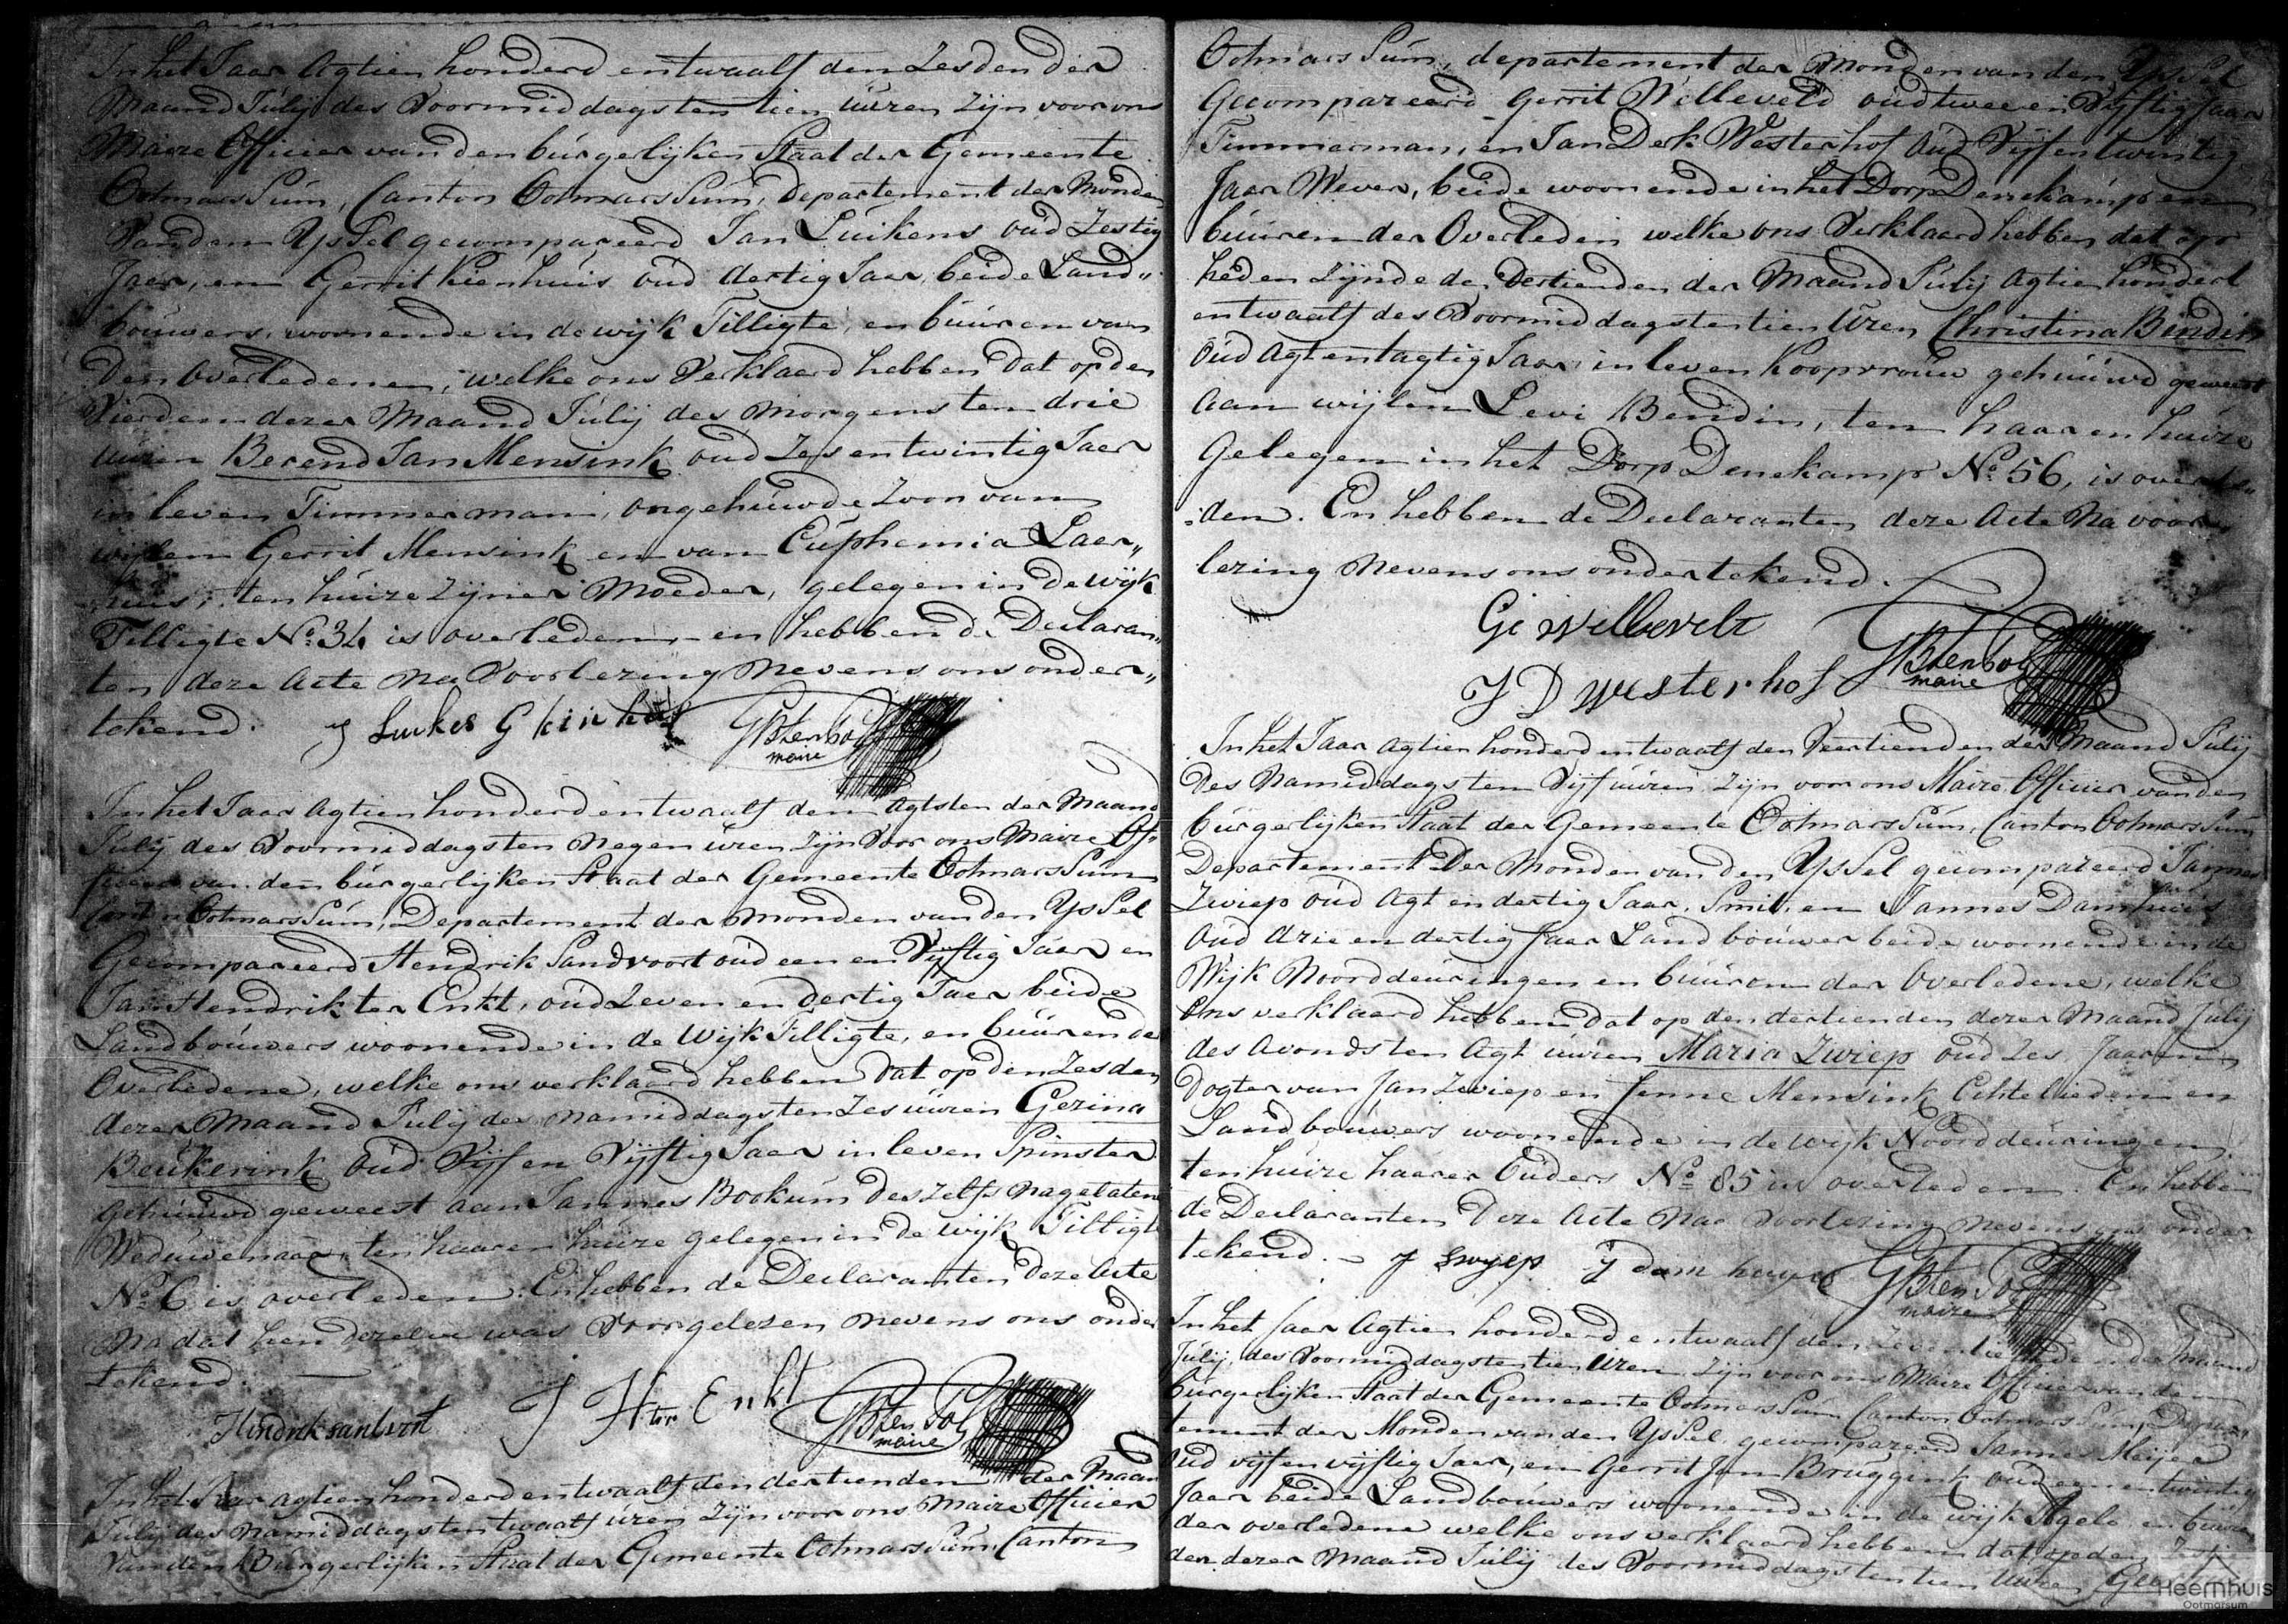 In het Jaar Agtien honderd en twaalf den Zesden der
Maand Julij des Voormiddags ten tien uuren zijn voor ons
Maire Officier van den burgerlijken Staat der Gemeente
OotmarsSum, Canton OotmarsSum, Departement der Monden
van den YsSel gecompareerd Jan Luikens oud Zestig
Jaar, en Gerrit Kienhuis oud dertig Jaar, beide Land„
bouwers, woonende in de wijk Tilligte, en buuren van
Den Overledenen, welke ons Verklaard hebben dat op den
Vierden dezer Maand Julij des Morgens ten drie
uuren Berend Jan Mensink oud Zes en twintig Jaer
in leven Timmerman, ongehuwde Zoon van
wijlen Gerrit Mensink en van Euphemia Laer„
huis, ten huize zijner Moeder, gelegen in de wijk
Tilligte No. 34 is overleden, en hebben de Declaran„
ten deze Acte na Voorlezing Nevens ons onder„
tekend. J Luikes G kinhus GB ten Pol
maire
In het Jaar Agtien honderd en twaalf den Agtsten der Maand
Julij des Voormiddags ten Negen uren zijn Voor ons Maire Of„
ficier van den burgerlijken Staat der Gemeente OotmarsSum
Canton OotmarsSum, Departement der Monden van den YsSel
Gecompareerd Hendrik Sandvoort oud een en Vijftig Jaar en
Jan Hendrik ter Enkt, oud Zeven en dertig Jaer beide
Landbouwers woonende in de Wijk Tilligte, en buuren der
Overledene, welke ons verklaard hebben dat op den Zesden
dezer Maand Julij des Namiddags ten Zes uuren Gezina
Beukerink oud Vijf en Vijftig Jaer in leven Spinster
gehuuwd geweest aan Jannes Bookum deszelfs nagelaten
Weduwenaar, ten haaren huize gelegen in de wijk Tilligte
No. 6 is overleden. En hebben de Declaranten deze Acte
Na dat hen dezelve was Voorgelezen nevens ons onder
tekend.
Hindrik sanbert J H ter Enkt GB ten Pol
maire
In het Jaar agtien honderd en twaalf den dertienden der Maand
Julij des Namiddags ten twaalf uren Zijn voor ons Maire Officier
van den Burgerlijken Staat der Gemeente OotmarsSum, Canton
OotmarsSum, departement der Monden van den YsSel
Gecompareerd Gerrit Willeveld oud twee en Vijftig Jaar
Timmerman, en Jan Derk Westerhof oud Vijf en twintig
Jaar Wever, beide woonende in het Dorp Denekamp en
buuren der Overleden welke ons Verklaard hebben dat op
heden Zijnde de Dertienden der Maand Julij Agtien honderd
en twaalf des Voormiddags ten tien Uren Christina Bendin
oud Agt en tagtig Jaar, in leven Koopvrouw gehuuwd geweest
aan wijlen Levi Bendin, ten haaren huize
gelegen in het Dorp Denekamp No. 56, is overle„
:den. En hebben de Declaranten deze Acte Na voor
lezing Nevens ons ondertekend.
G: Willevelt
J D Westerhof GB ten Pol
maire
In het Jaar agtien honderd en twaalf den Veertienden der Maand Julij
Des Namiddags ten Vijf uuren Zijn voor ons Maire Officier van den
burgerlijken Staat der Gemeente OotmarsSum, Canton OotmarsSum
Departement Der Monden van den YsSel gecompareerd Jannes
Zwiep oud Agt en dertig Jaar, Smit, en Jannes Damhuis
oud drie en dertig Jaar Landbouwer beide woonende in de
Wijk Noorddeuringen en buuren der Overledene, welke
ons verklaard hebben dat op den dertienden dezer Maand Julij
des Avonds ten Agt uuren Maria Zwiep oud Zes Jaaren
Dogter van Jan Zwiep en Jenne Mensink Echtelieden en
Landbouwers woonende in de wijk Noorddeuringen
ten huize haarer Ouders No. 85 is overleden. En hebben
de Declaranten Deze Acte Nae Voorlezing nevens ons onder
tekend. J Swyep J dam huys GB ten Pol
maire
In het Jaar Agtien honderd en twaalf den Zeventienden der Maand
Julij, des Voormiddags ten tien Uren Zijn voor ons Maire Officier van den
burgerlijken Staat der Gemeente OotmarsSum Canton OotmarsSum, Depar„
tement der Monden van den YsSel gecompareerd Jannes Meijer
Oud vijf en vijftig Jaer, en Gerrit Jan Bruggink oud een en twintig
Jaer beide Landbouwers woonende in de wijk Agele en buuren
der overledene welke ons verklaard hebben dat op den
den dezer Maand Julij des Voormiddags ten tien Uuren
Heemhuis
Ootmarsum